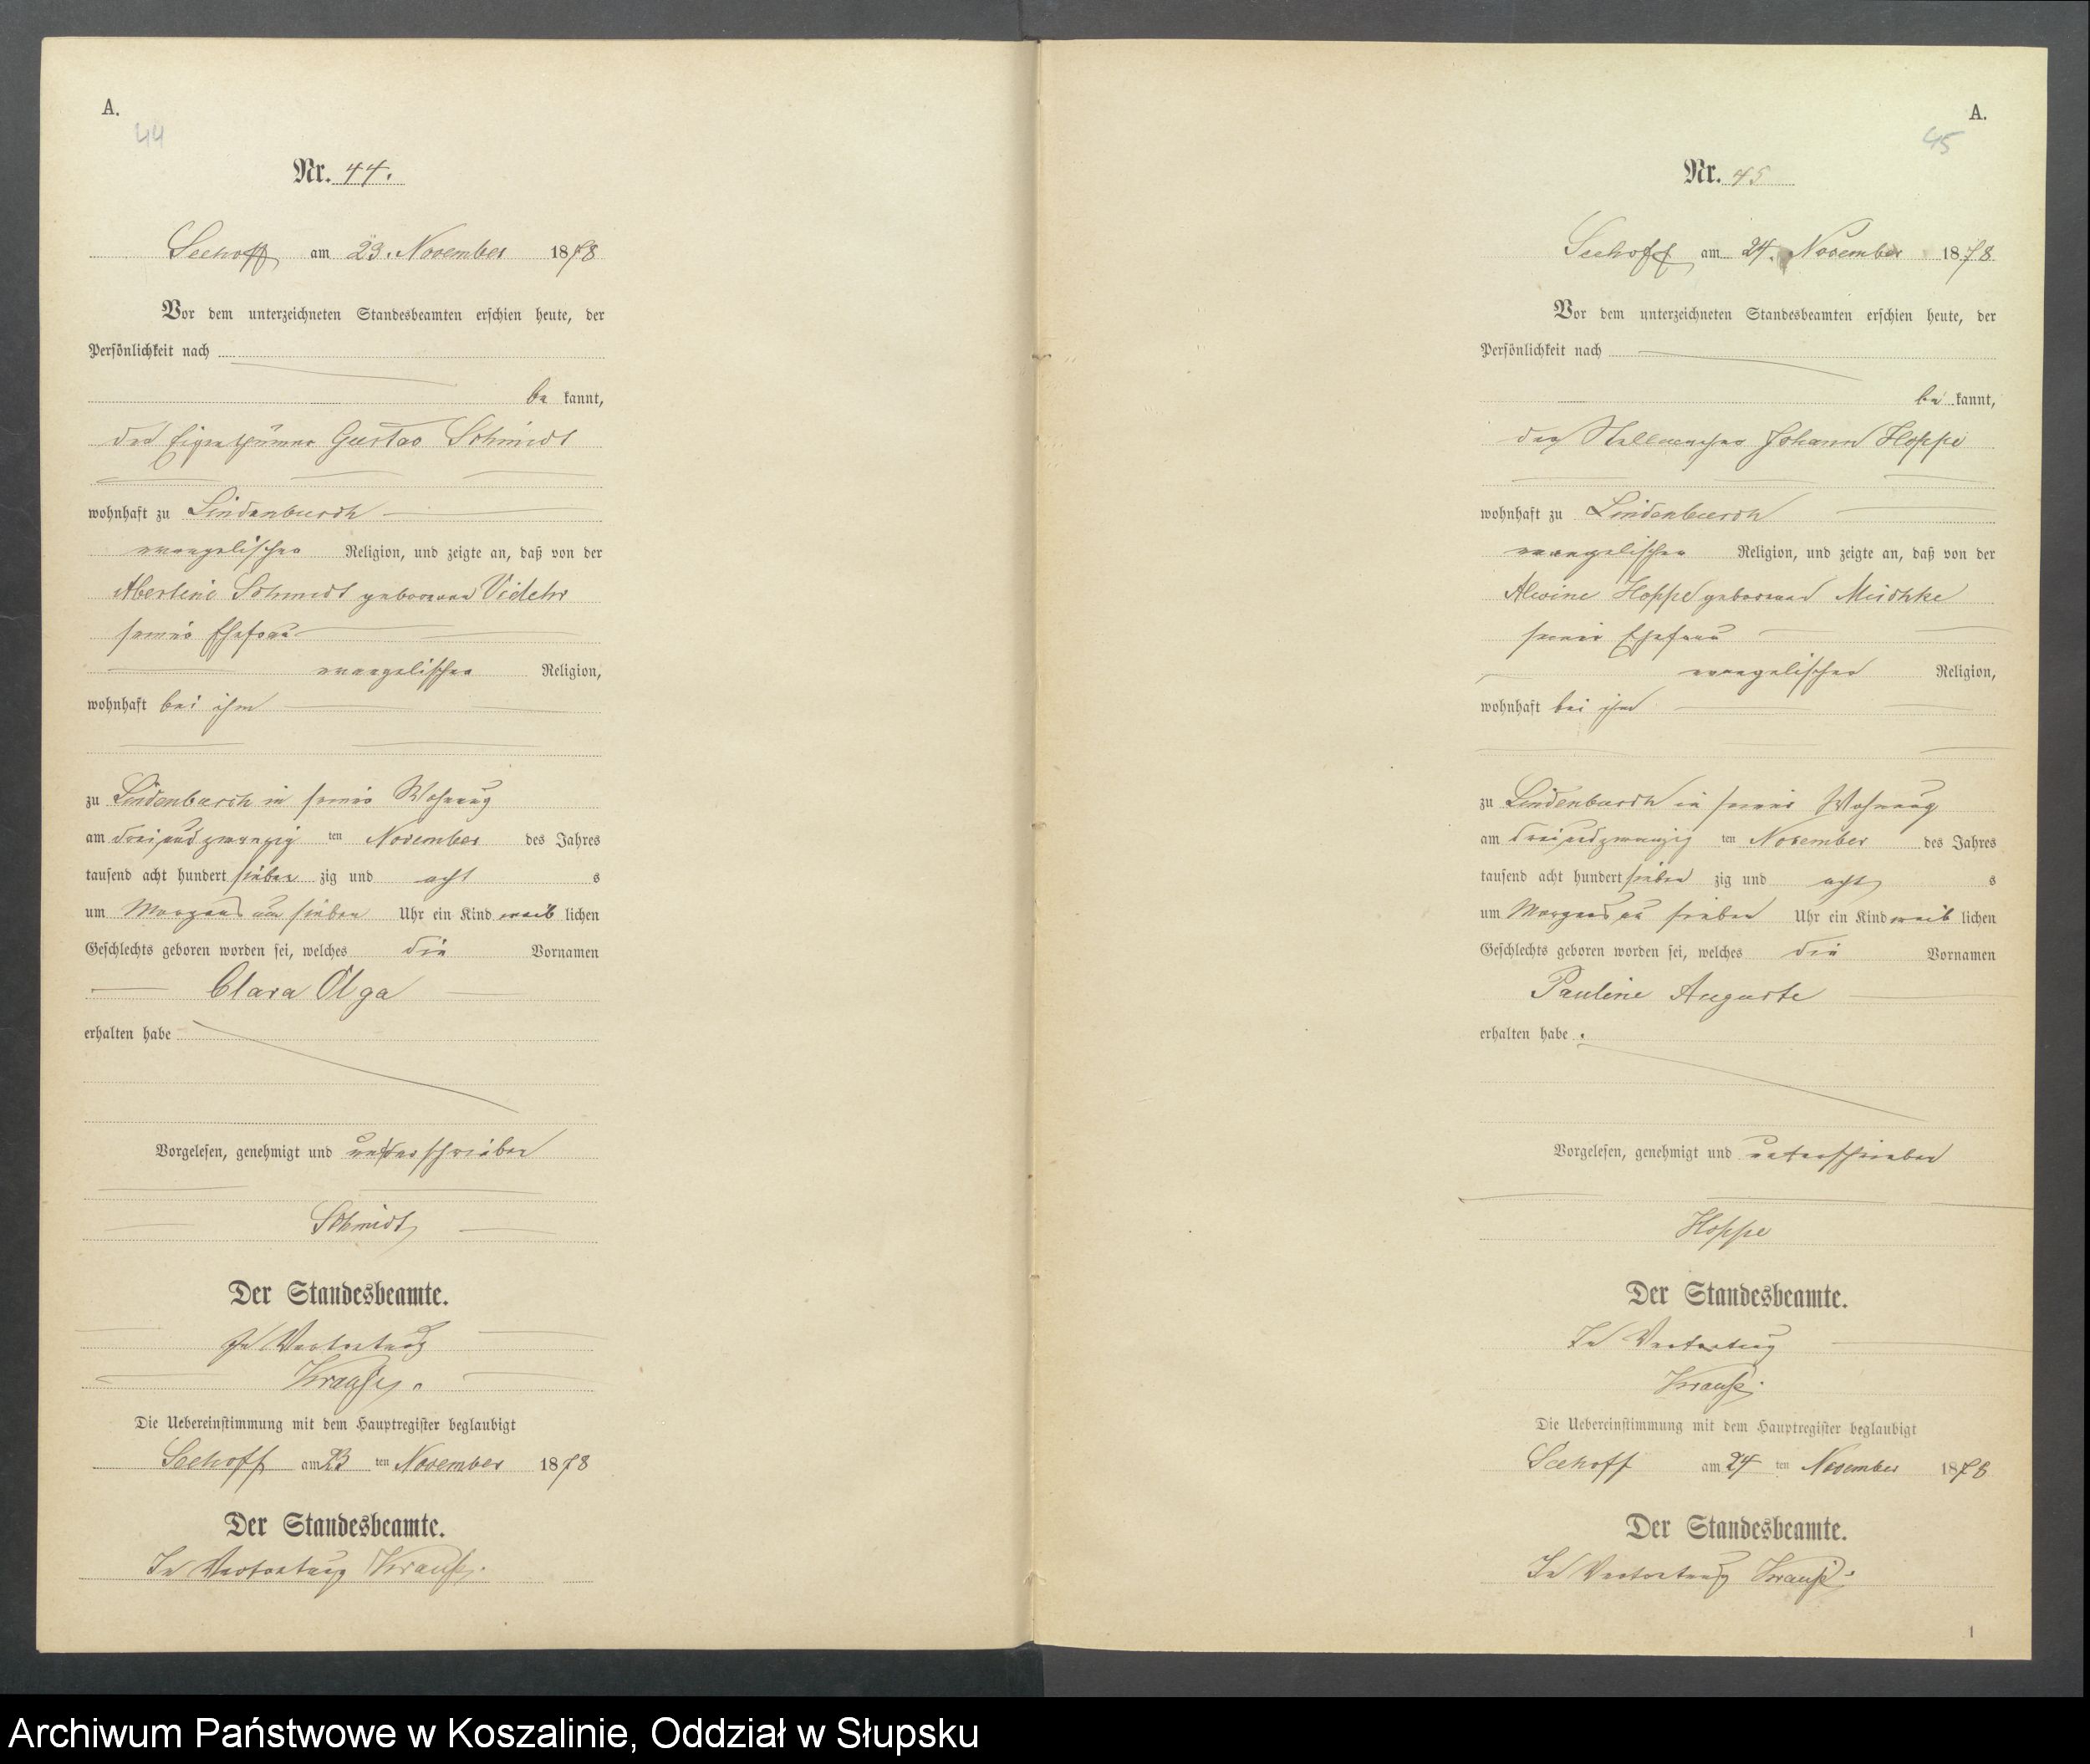 A.
44
Nr. 44.
Seehoff am 23. November 1878
Vor dem unterzeichneten Standesbeamten erschien heute, der
Persönlichkeit nach
be kannt,
der Eigenthümer Gustav Schmidt
wohnhaft zu Lindenbusch
evangelischer Religion, und zeigte an, daß von der
Albertine Schmidt geborenen
seiner Ehefrau
evangelischer Religion,
wohnhaft bei ihm
zu Lindenbusch in seiner Wohnung
am drei und zwanzig ten November des Jahres
tausend acht hundert sieben zig und acht s
um Morgens um sieben Uhr ein Kind weib lichen
Geschlechts geboren worden sei, welches die Vornamen
Clara Olga
erhalten habe
Vorgelesen, genehmigt und unterschrieben
Schmidt
Der Standesbeamte.
In Vertretung
Krause.
Die Uebereinstimmung mit dem Hauptregister beglaubigt
Seehoff am 23 ten November 1878
Der Standesbeamte.
In Vertretung Krause.
A.
45
Nr. 45
Seehoff am 24. November 1878
Vor dem unterzeichneten Standesbeamten erschien heute, der
Persönlichkeit nach
be kannt,
der Stellmacher Johann Hoppe
wohnhaft zu Lindenbusch
evangelischer Religion, und zeigte an, daß von der
Alwine Hoppe geborenen Mischke
seiner Ehefrau
evangelischer Religion,
wohnhaft bei ihm
zu Lindenbusch in seiner Wohnung
am drei und zwanzig ten November des Jahres
tausend acht hundert sieben zig und acht s
um Morgens um sieben Uhr ein Kind weib lichen
Geschlechts geboren worden sei, welches die Vornamen
Pauline Auguste
erhalten habe.
Vorgelesen, genehmigt und unterschrieben
Hoppe
Der Standesbeamte.
In Vertretung
Krause.
Die Uebereinstimmung mit dem Hauptregister beglaubigt
Seehoff am 24 ten November 1878
Der Standesbeamte.
In Vertretung Krause.
1
Archiwum Państwowe w Koszalinie, Oddział w Słupsku